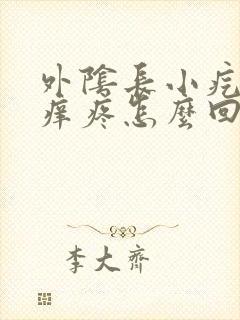 外陰長小疙
癢疼怎麼回
李大齊